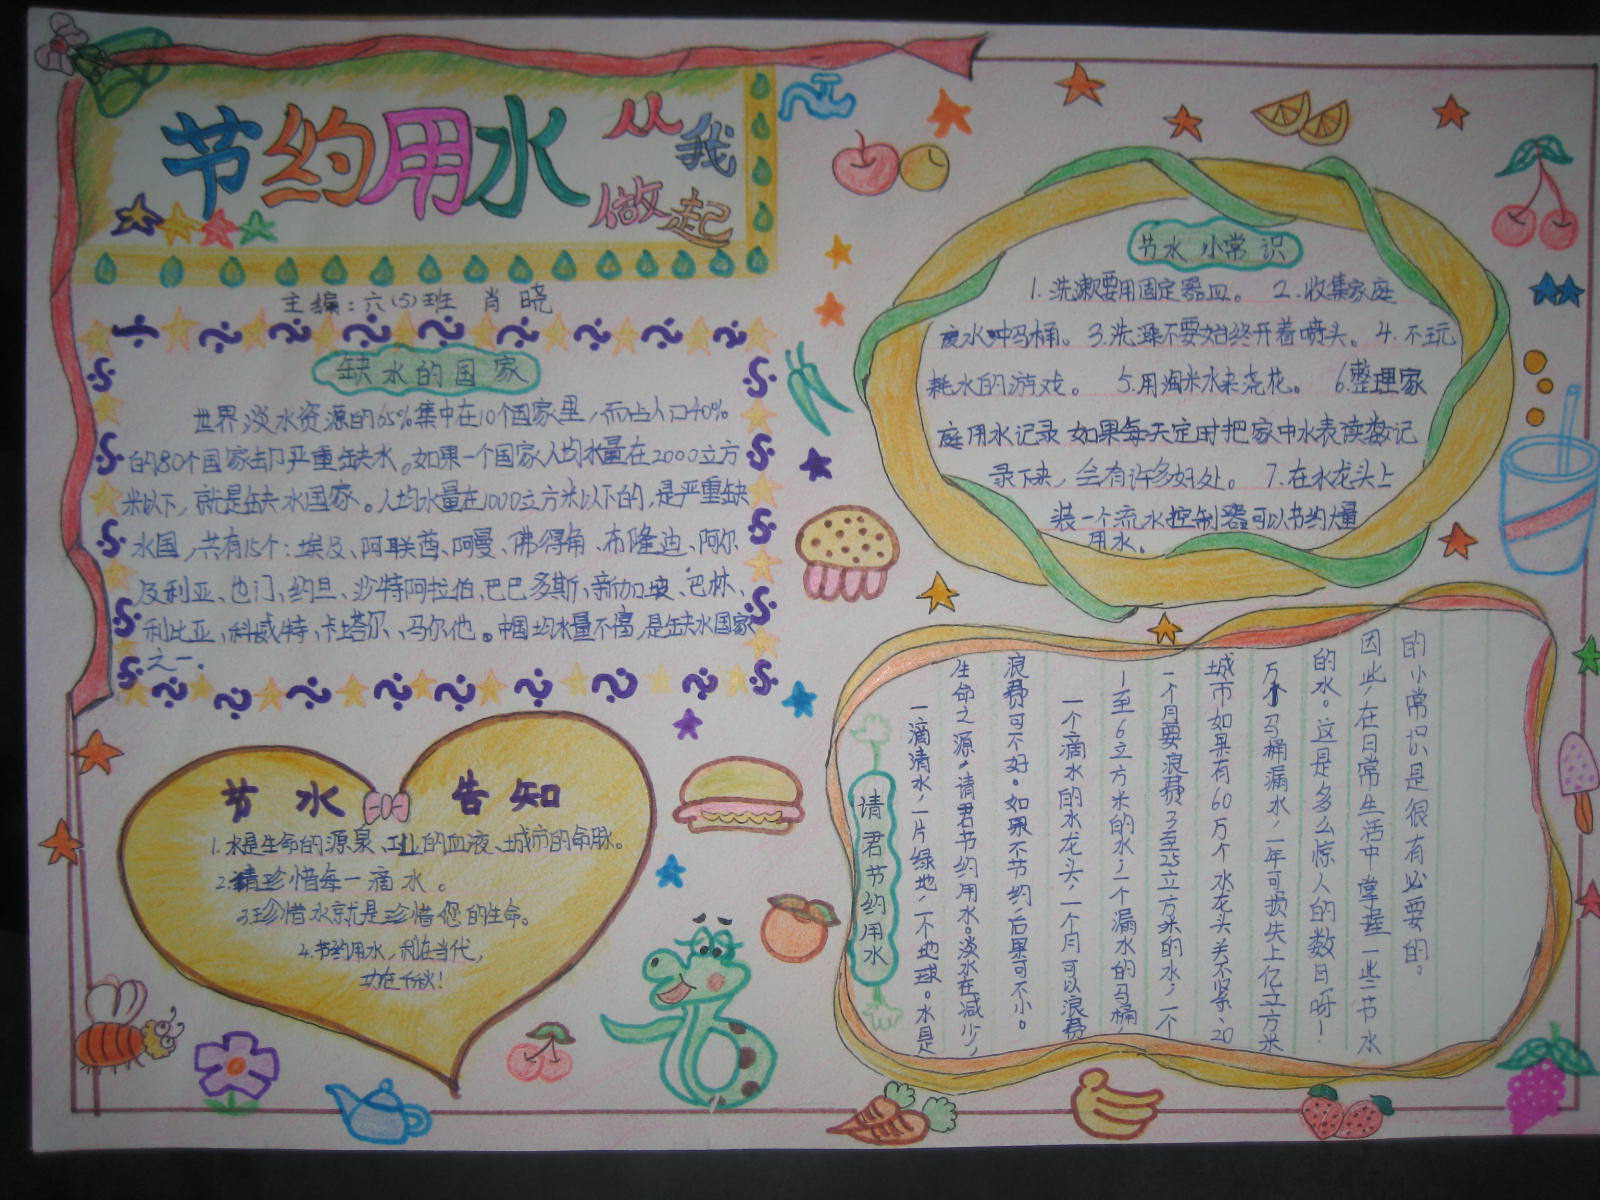 节约用水
从我
做起
主编：六(5)班 肖晓
缺水的国家
世界淡水资源的65%集中在10个国家里，而占人口40%
的80个国家却严重缺水。如果一个国家人均水量在2000立方
米以下，就是缺水国家。人均水量在1000立方米以下的，是严重缺
水国，共有15个：埃及、阿联酋、阿曼、佛得角、布隆迪、阿尔
及利亚、也门、约旦、沙特阿拉伯、巴巴多斯、新加坡、巴林、
利比亚、科威特、卡塔尔、马尔他。中国均水量不富，是缺水国家
之一.
节水告知
1.水是生命的源泉、工业的血液、城市的命脉。
2.请珍惜每一滴水。
3.珍惜水就是珍惜您的生命。
4.节约用水，利在当代，
功在千秋！
节水小常识
1.洗漱要用固定器皿。 2.收集家庭
废水冲马桶。3.洗澡不要始终开着喷头。4.不玩
耗水的游戏。 5.用淘米水来浇花。 6.整理家
庭用水记录 如果每天定时把家中水表读数记
录下来，会有许多好处。 7.在水龙头上
装一个流水控制器可以节约大量
用水。
请君节约用水
一滴清水，一片绿地，一个地球。水是
生命之源，请君节约用水。淡水在减少，
浪费可不好。如果不节约，后果可不小。
一个滴水的水龙头，一个月可以浪费
1至6立方米的水，一个漏水的马桶，
一个月要浪费3至25立方米的水，一个
城市如果有60万个水龙头关不紧、20
万个马桶漏水，一年可损失上亿立方米
的水。这是多么惊人的数目呀！
因此，在日常生活中掌握一些节水
的小常识是很有必要的。